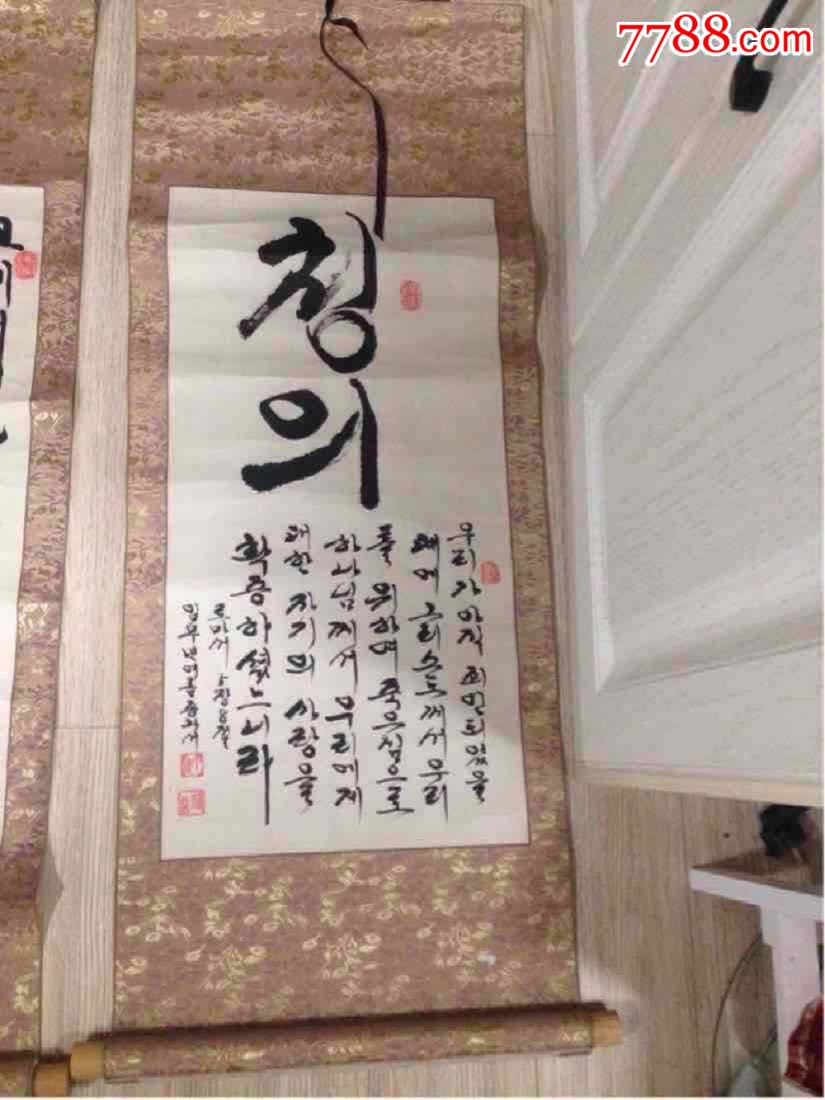 7788.com
칭의
우리가 아직 죄인되었을
때에 그리스도께서 우리
를 위하여 죽으심으로
하나님께서 우리에게
대한 자기의 사랑을
확증하셨느니라
로마서 5장8절